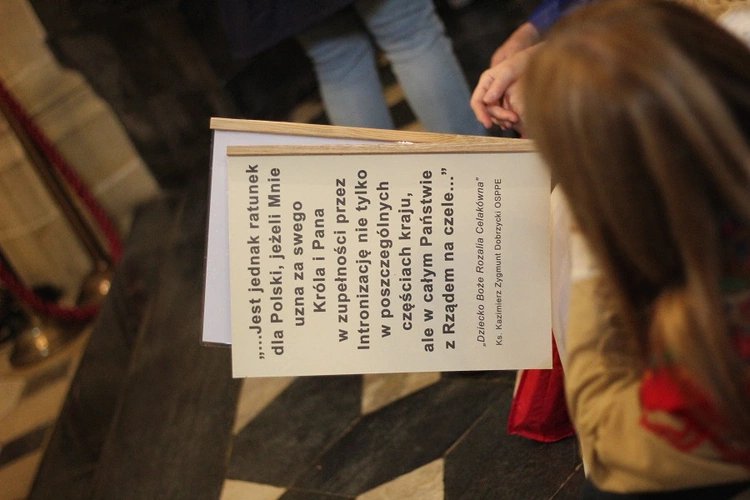 „...Jest jednak ratunek
dla Polski, jeżeli Mnie
uzna za swego
Króla i Pana
w zupełności przez
Intronizację nie tylko
w poszczególnych
częściach kraju,
ale w całym Państwie
z Rządem na czele...”
„Dziecko Boże Rozalia Celakówna”
Ks. Kazimierz Zygmunt Dobrzycki OSPPE